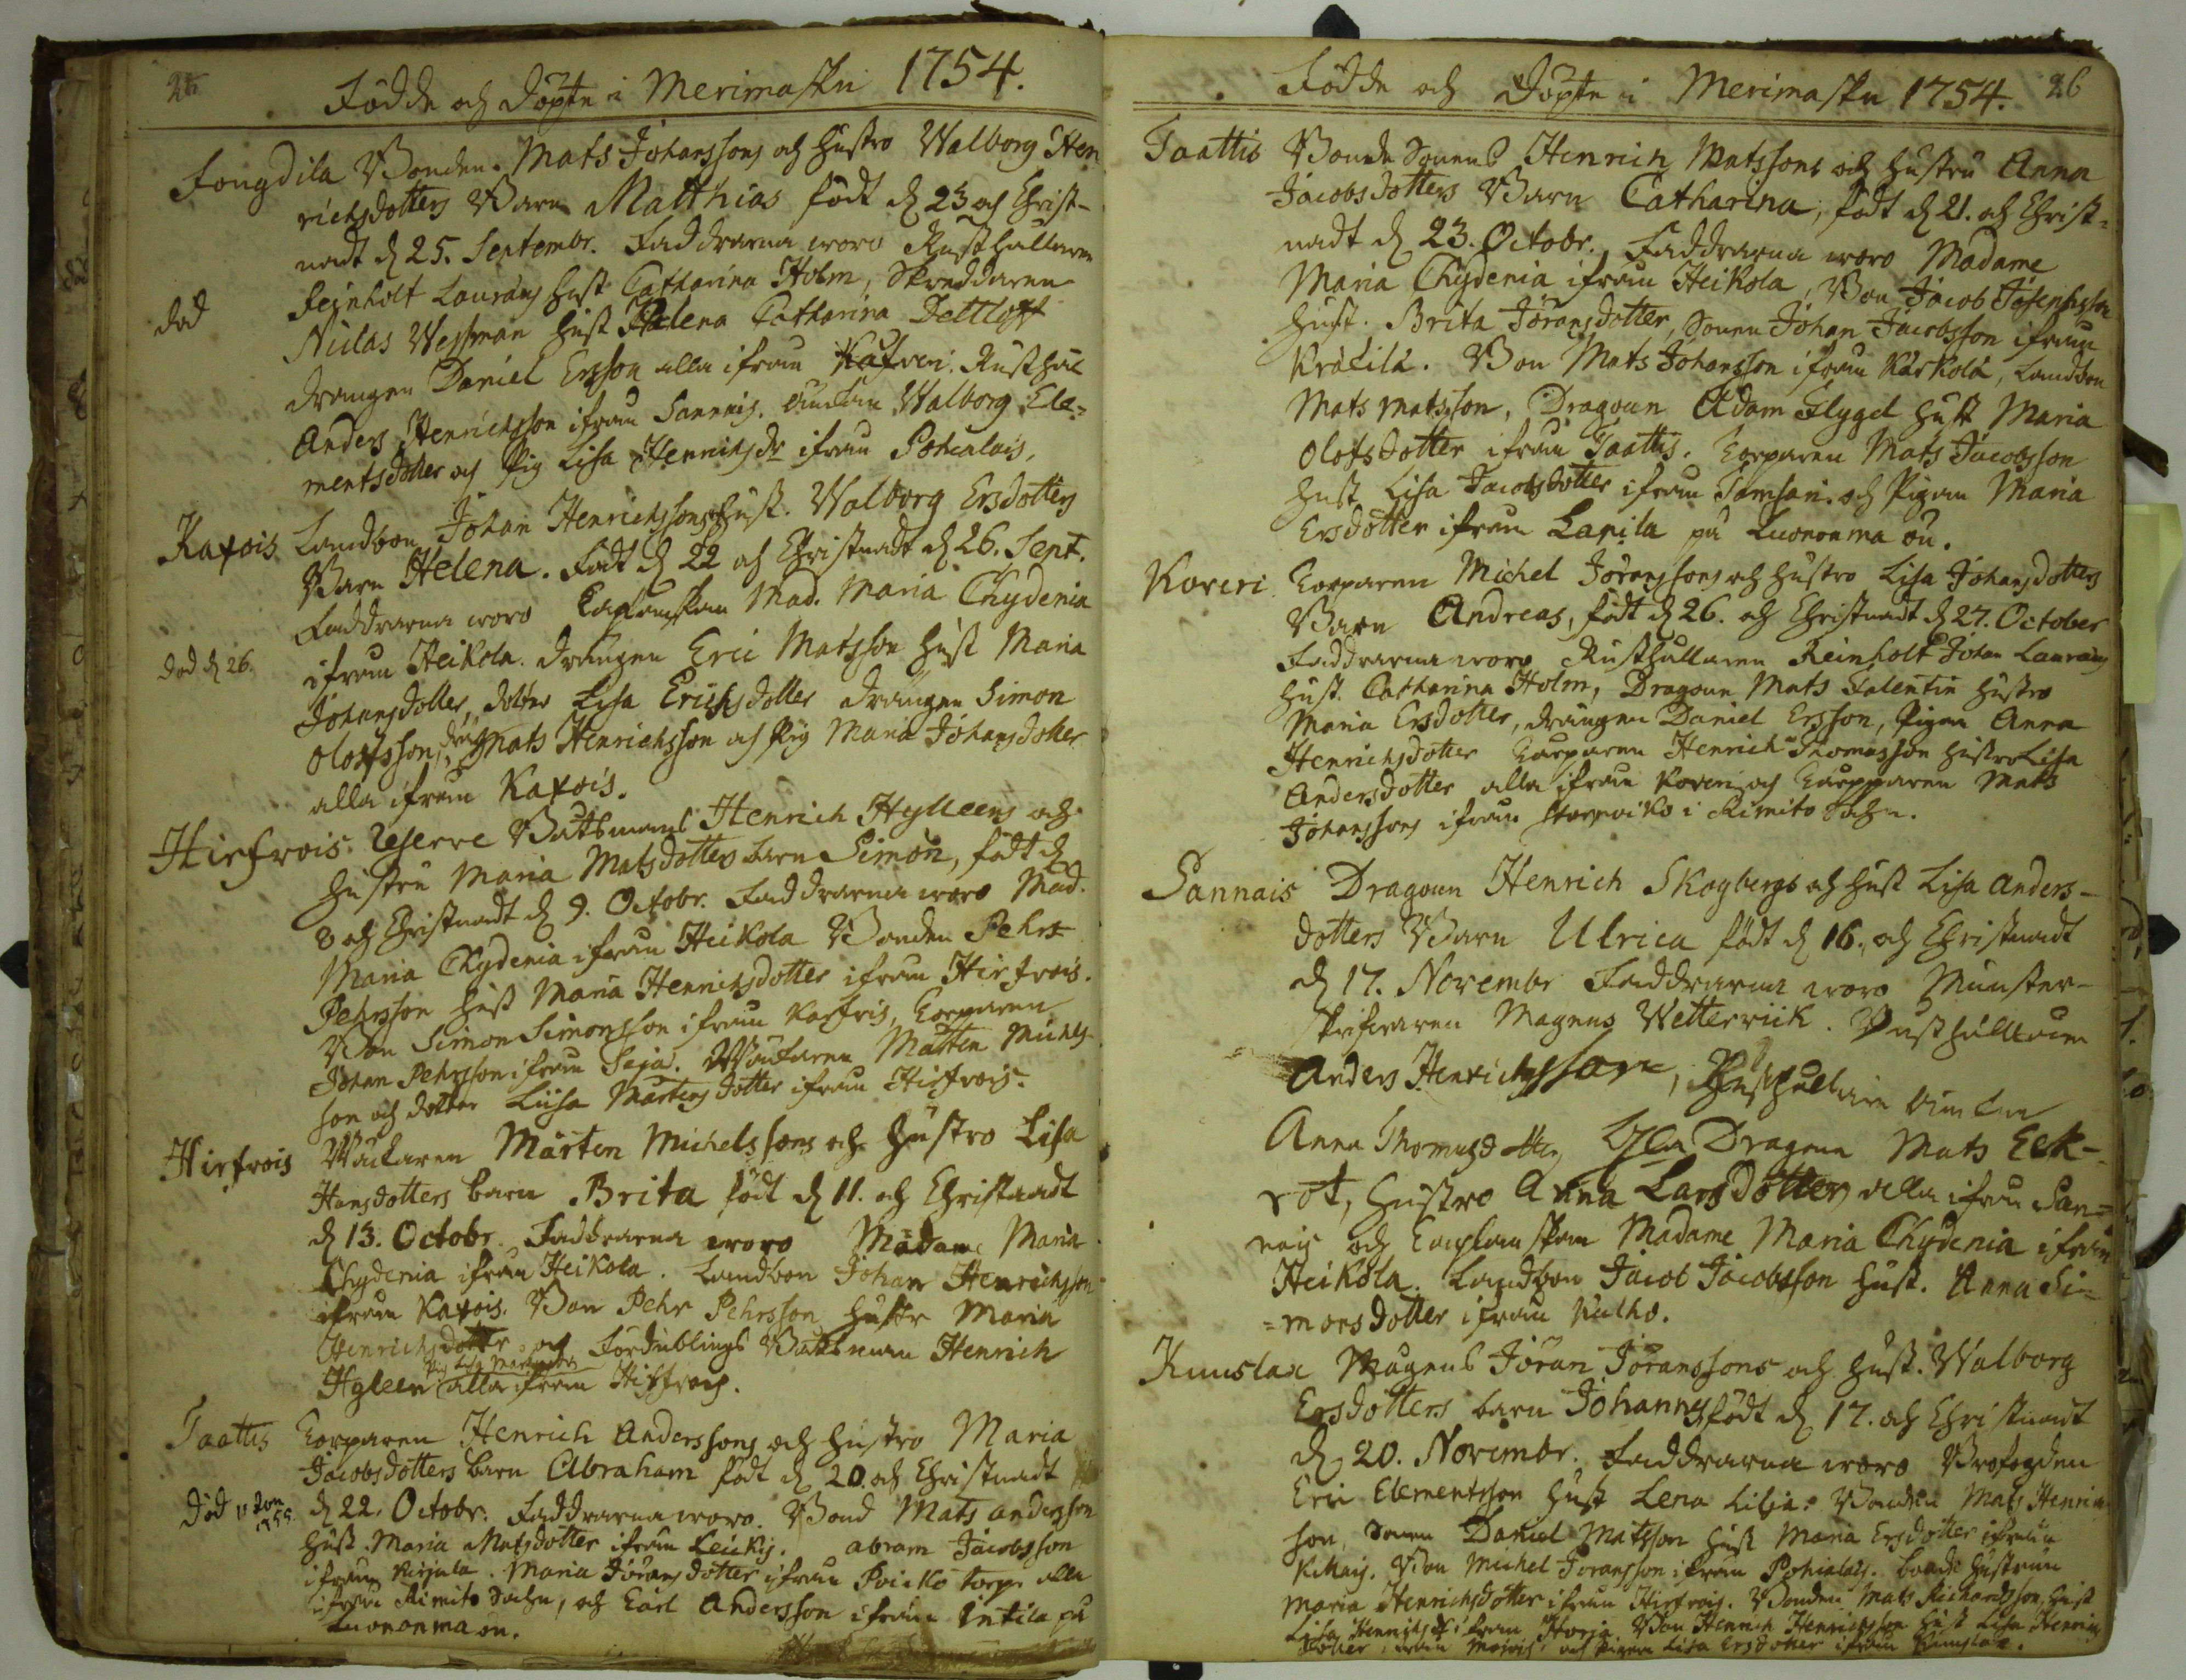 Födde och Döpte i Merimasku 1754.
Bonden Mats Johanssons och hustro Walborg Hen
richsdotters Barn Matthias född d. 23 och Christ-
nadt d. 25. Septembr. Faddrarna woro Rusthållaren
Reinholt Laurens hust. Catharina Holm, Skreddaren
död
Niclas Wessman hust Helena Catharina Dettloff
drängen Daniel Ersson alla ifrån Rusthål
Anders Henrichsson ifrån Sannais. Walborg Cle=
mentsdotter och Pig. Lisa Henrichsdr ifrån Pohialais.
Kaxois Landbon Johan Henrichssons hust. Walborg Ersdotters
Barn Helena. Född d. 22 och Christnadt d. 26. Sept.
Faddrarna woro Caplanskan Mad. Maria Chydenia
död d. 26.
ifrån Heikola. drängen Eric Matsson hust Maria
Johansdotter, dotter Lisa Erichsdotter drängen Simon
Olofsson, dreng Mats Henrichsson och Pig Maria Johansdotter
alla ifrån Kaxois.
Hirfvois. Reserve Båtsmans Henrich Hylleens och
hustru Maria Matsdotters barn Simon, född d.
8 och Christnadt d. 9. Octobr. Faddrarna woro Mad.
Maria Chydenia ifrån Heikola Bonden Pehr
Pehrsson hust Maria Henrichsdotter ifrån Hirfvois.
Bon Simon Simonsson ifrån Korparen
Johan Pehrsson ifrån Seja. Matten Michels
son och dotter Liisa Mårtensdotter ifrån Hirfvois.
Hirfvois Mårten Michelssons och hustro Lisa
Hansdotters barn Brita född d. 11. och Christnadt
d. 13. Octobr. Faddrarna woro Madame Maria
Chydenia ifrån Heikola. Landbon Johan Henrichsson
ifrån Kaxois. Bon Pehr Pehrsson hustr Maria
Henrichsdotter och Fördublings Båtsman Henrich
Hyleen alla ifrån Hirfvois.
Taattis Korparen Henrich Anderssons och hustro Maria
Jacobsdotters barn Abraham född d. 20. och Christnadt
död 1755.
d. 22. Octobr. Faddrarna woro. Bond Mats Andersson
hust. Maria Matsdotter ifrån Leikis. Abram Jacobsson
ifrån Kirjala. Maria Jöransdotter ifrån Poicko torp alla
ifrån Rimito Sochn, och Carl Andersson ifrån Intila på
Luononmaa ön.
Födde och Döpte i Merimasku 1754. 26
Taattis Bonde Sonens Henrich Matssons och hustru Anna
Jacobsdotters Barn Catharina, född d. 21. och Christ=
nadt d. 23. Octobr. Faddrarna woro Madame
Maria Chydenia ifrån Heikola, Bon Jacob Josephsson
hust. Brita Jöransdotter, Sonen Johan Jacobsson ifrån
Bon Mats Johansson ifrån Karkola, Landbon
Mats Matsson, Dragoun Adam Flygel hust Maria
Olofsdotter ifrån Taattis. Korparen Mats Jacobsson
hust Lisa Jacobsdotter ifrån Samsari. och Pigan Maria
Ersdotter ifrån Lapila på Luononma ön.
Koveri Korparen Michel Jöranssons och hustro Lisa Johansdotters
Barn Andreas, född d. 26. och Christnadt d. 27. October
Faddrarna woro Rusthållaren Reinholt Johan Laurens
hust. Catharina Holm, Dragoun Mats Falentin hustro
Maria Ersdotter, drängen Daniel Ersson, Pigan Anna
Henrichsdotter Korparen Henrich Thomasson hustro Lisa
Andersdotter alla ifrån Koveri och Korpparen Mats
Johanssons ifrån i Rimito Sochn.
Sannais Dragoun Henrich Skogbergs och hust Lisa Anders-
dotters Barn Ulrica född d. 16. och Christnadt
d. 17. Novembr Faddrarna woro Mönster-
skrifvaren Magnus Wetterwick. Rusthållaren
Anders Henrichsson,
Anna Thomasdotter, Dragoun Mats Eek-
rot, Hustro Anna Larsdotter alla ifrån San=
nais och Caplanskan Madame Maria Chydenia ifrån
Heikola. Landbon Jacob Jacobsson hust. Anna Si=
=monsdotter ifrån Kulho.
Kuuslax Jöran Jöranssons och hust. Walborg
Ersdotters barn Johannes född d. 17. och Christnadt
d. 20. Novembr. Faddrarna woro
Eric Clementsson hust Lena Lilja. Bonden Mats Henrich
son, Sonen Daniel Matsson hust Maria Ersdotter ifrån
Bon Michel Joransson ifrån Pohialais. bonde hustrun
Maria Henrichsdotter ifrån Hirfvois. Bonden Mats Richardsson, hust
Lisa Henrichsdr ifrån Bon Henrich Henrichsson hust Lisa Henrichs
dotter ifrån och Pigan Lisa Ersdotter ifrån Kuuslax.